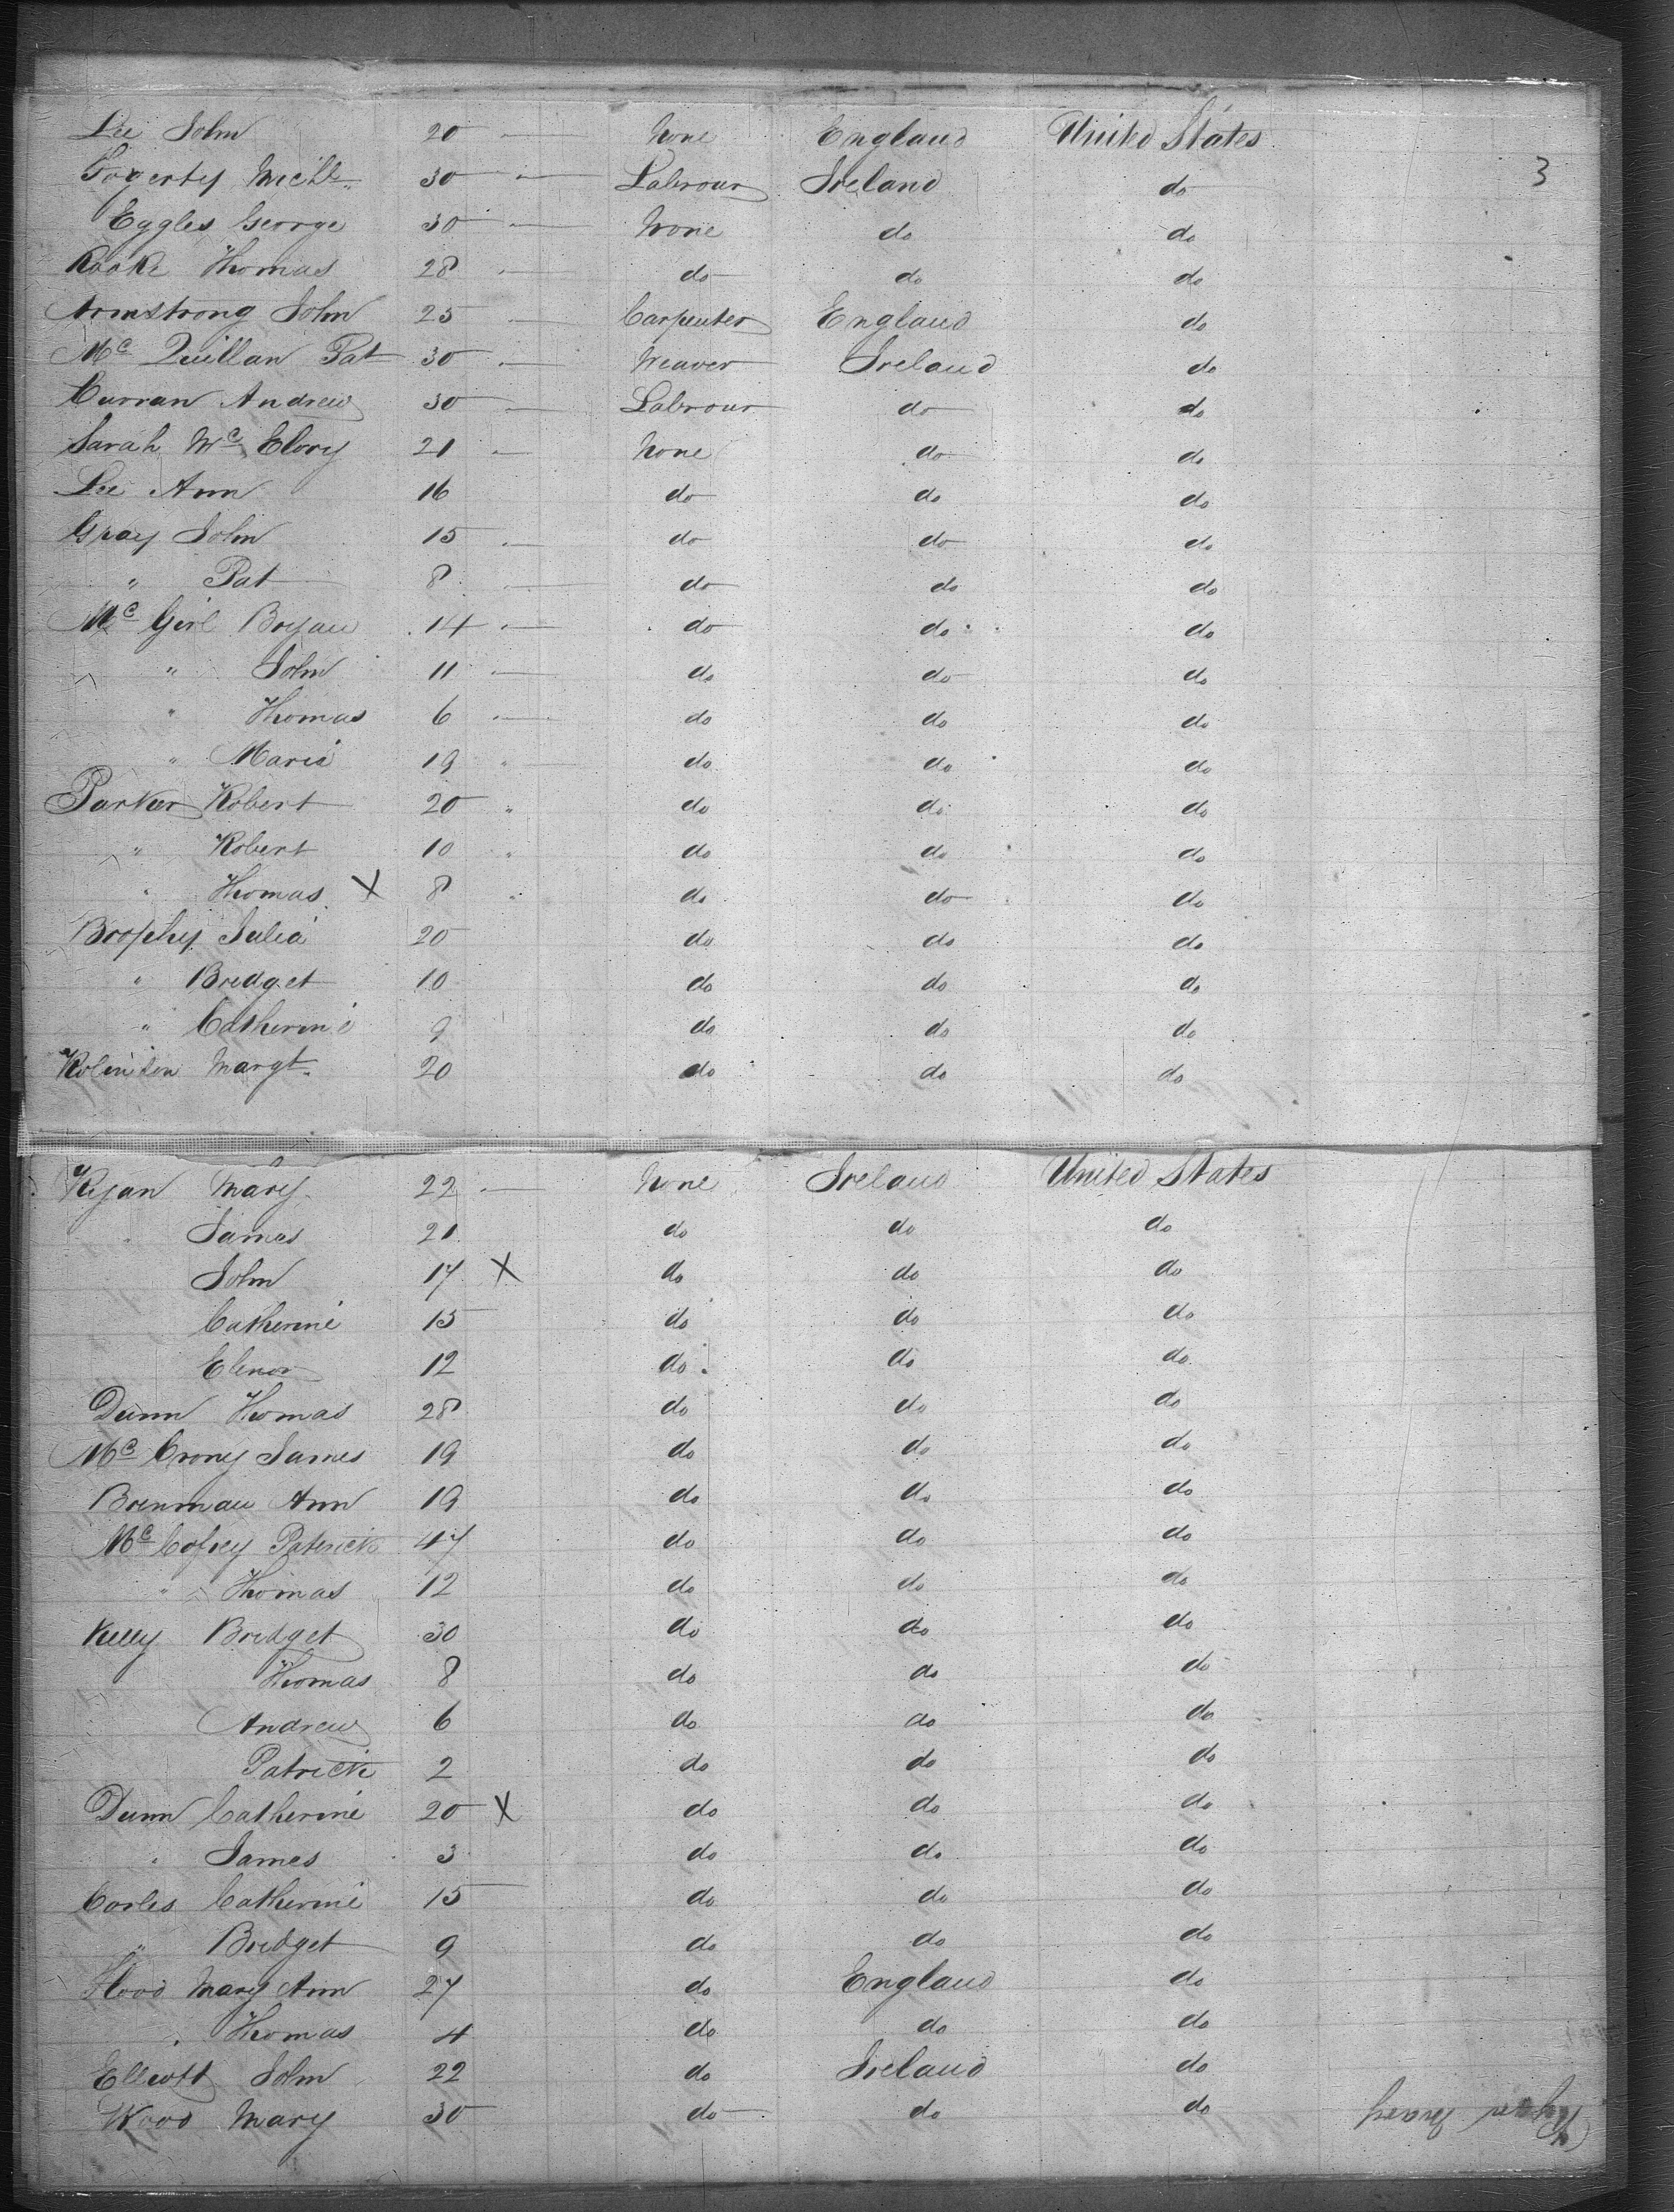 3
Lee John 20 None England United States
Fogerty Michl. 30 Labrour Ireland do
Eggles George 30 None do do
Rooke Thomas 28 do do do
Armstrong John 25 Carpenter England do
Mc Quillan Pat 30 Weaver Ireland do
Curran Andrew 30 Labrour do do
Sarah Mc Elory 21 None do do
Lee Ann 16 do do do
Gray John 15 do do do
" Pat 8 do do do
Mc Girl Bryan 14 do do do
" John 11 do do do
" Thomas 6 do do do
" Maria 19 " do do do
Parker Robert 20 " do do do
" Robert 10 " do do do
" Thomas X 8 " do do do
Brophy Julia 20 do do do
" Bridget 10 do do do
" Catherine 9 do do do
Robinson Margt. 20 do do do
Ryan Mary 22 None Ireland United States
" James 21 do do do
John 17 X do do do
Catherine 15 do do do
Elenor 12 do do do
Dunn Thomas 28 do do do
Mc Crony James 19 do do do
Brennnan Ann 19 do do do
Mc Cofrey Patrick 47 do do do
" Thomas 12 do do do
Kelly Bridget 30 do do do
Thomas 8 do do do
Andrew 6 do do do
Patrick 2 do do do
Dunn Catherine 20 X do do do
" James 3 do do do
Corles Catherine 15 do do do
" Bridget 9 do do do
Flood Mary Ann 27 do England do
" Thomas 4 do do do
Elliott John 22 do Ireland do
Wood Mary 30 do do do
Ryan Mary